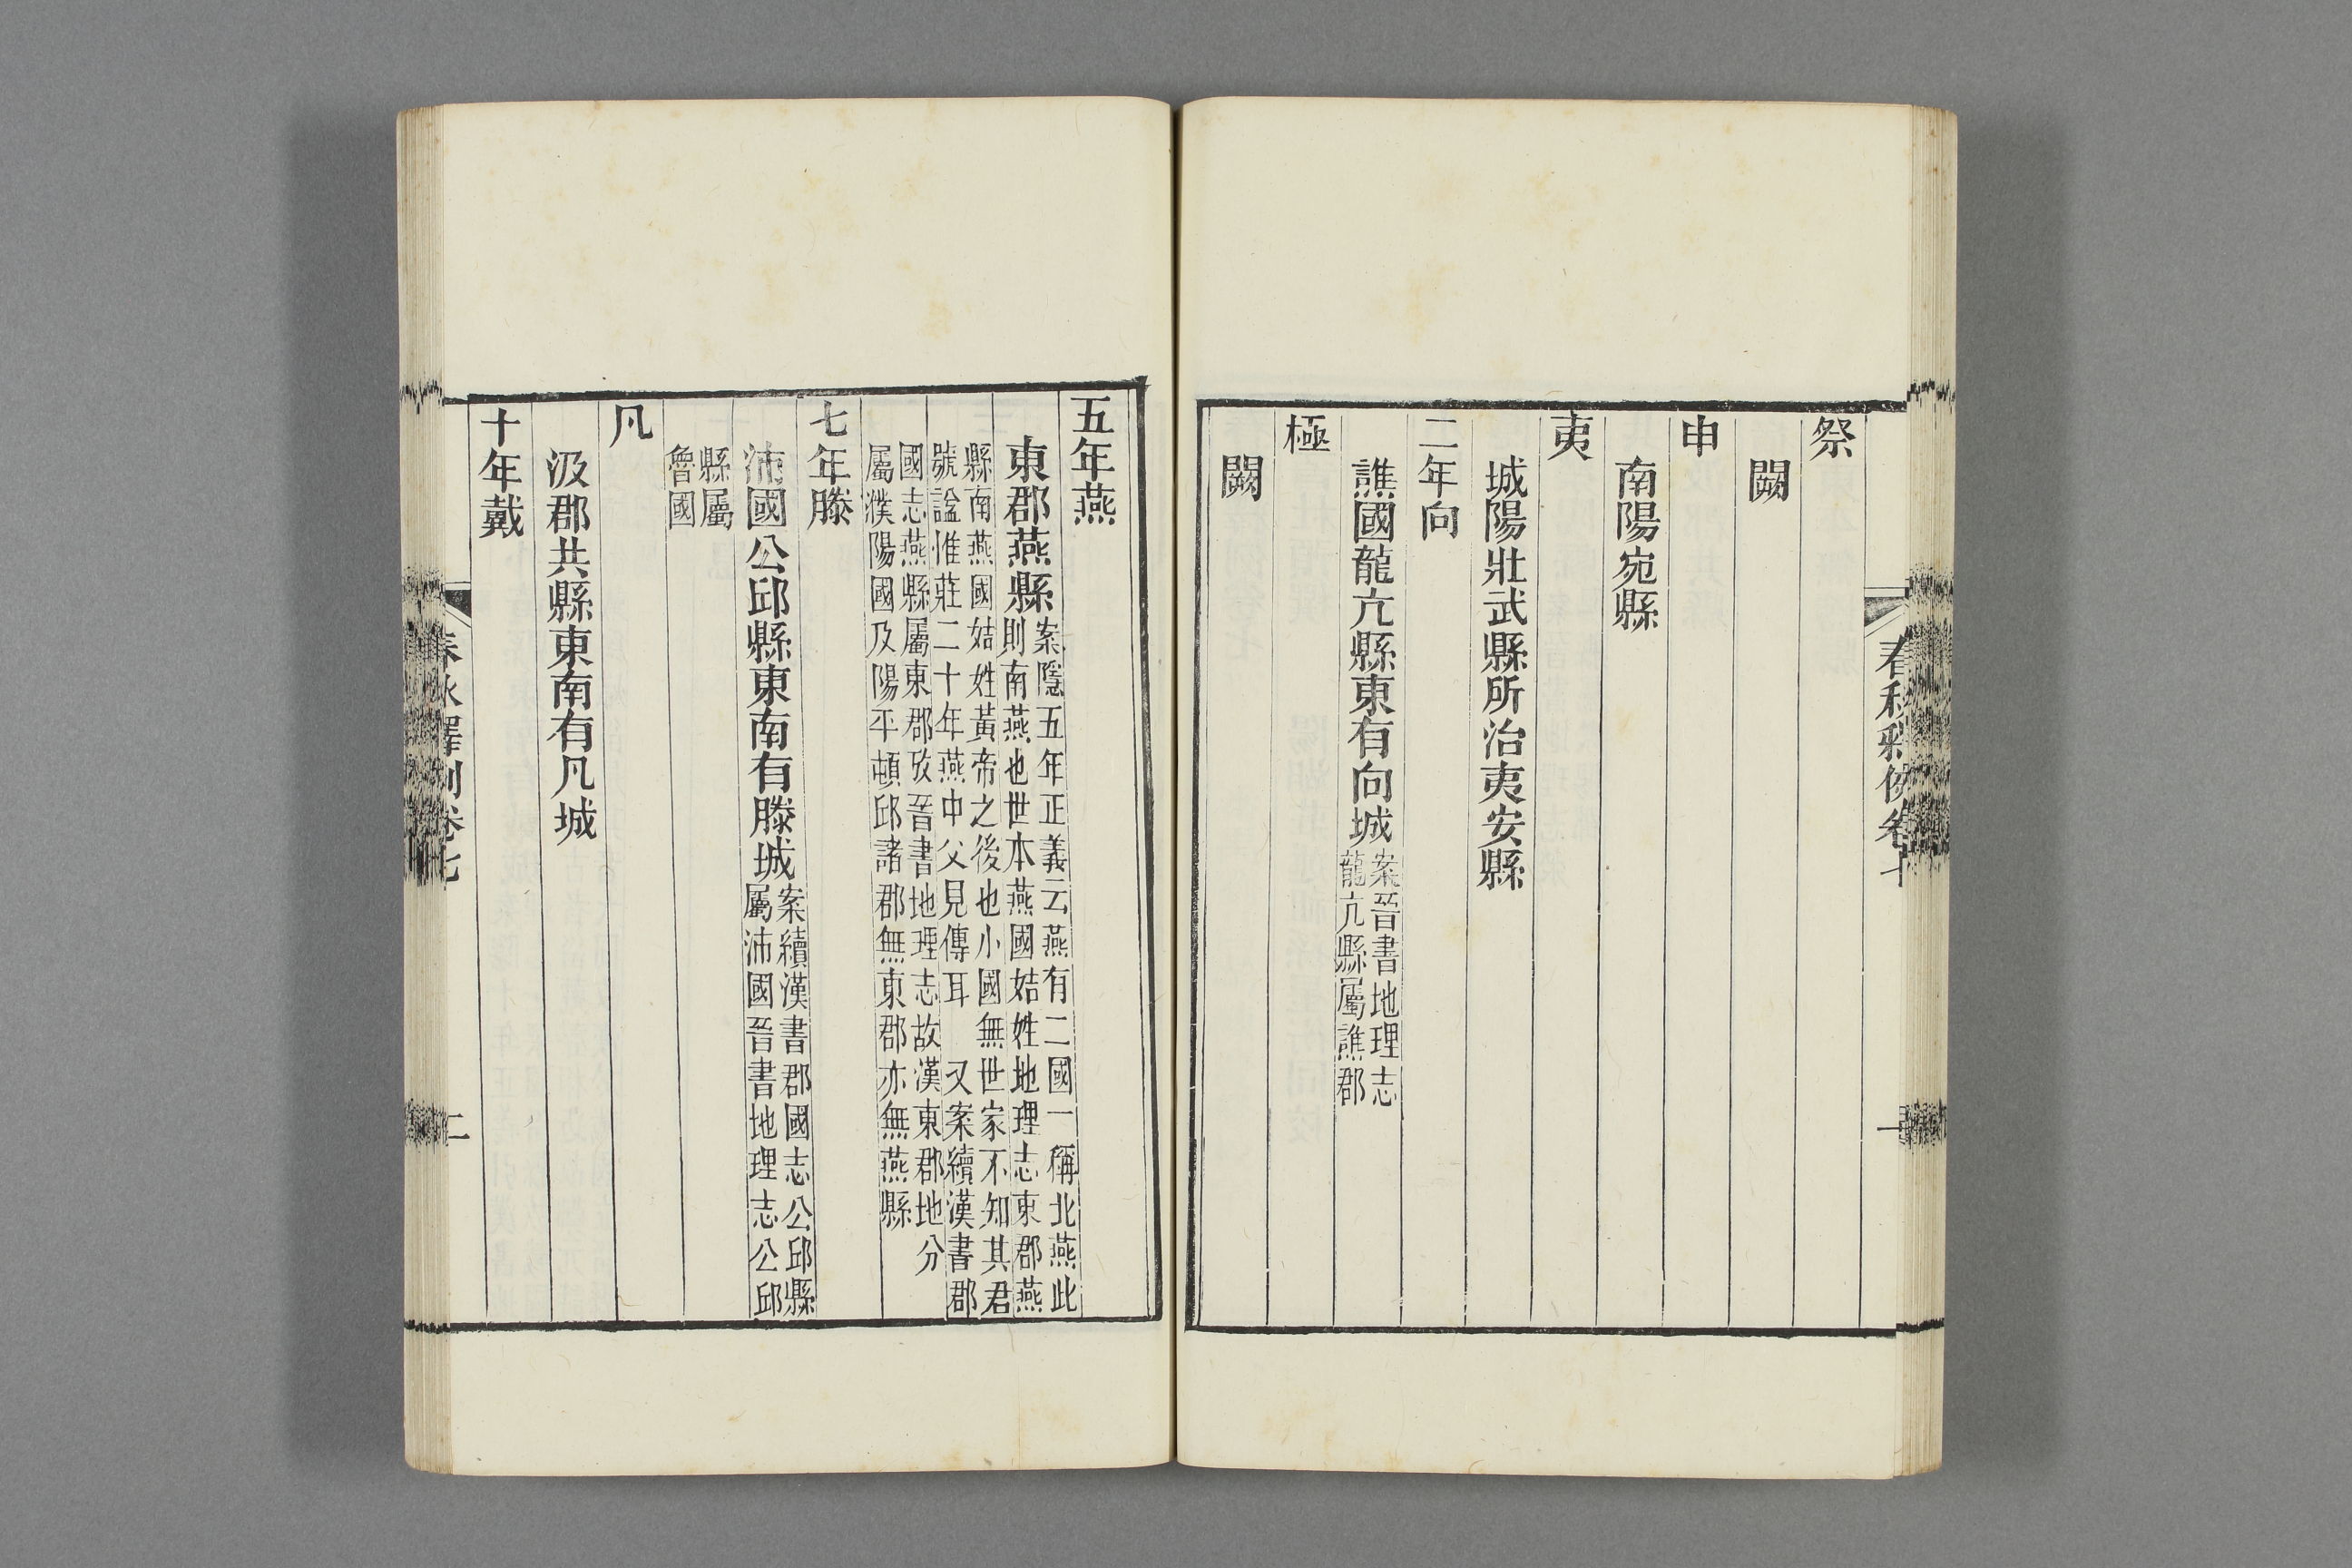 春秋釋例卷七
祭
闕
申
南陽宛縣
夷
城陽壯武縣所治夷安縣
二年向
譙國龍亢縣東有向城案晉書地理志
龍亢縣屬譙郡
極
闕
五年燕
東郡燕縣案隱五年正義云燕有二國一稱北燕此
則南燕也世本燕國姞姓地理志東郡燕
縣南燕國姞姓黃帝之後也小國無世家不知其君
號謚惟莊二十年燕仲父見傳耳 又案續漢書郡
國志燕縣屬東郡攷晉書地理志故漢東郡地分
屬濮陽國及陽平頓邱諸郡無東郡亦無燕縣
七年滕
沛國公邱縣東南有滕城案續漢書郡國志公邱縣
屬沛國晉書地理志公邱
縣屬
魯國
凡
汲郡共縣東南有凡城
十年戴
春秋釋例卷七
二